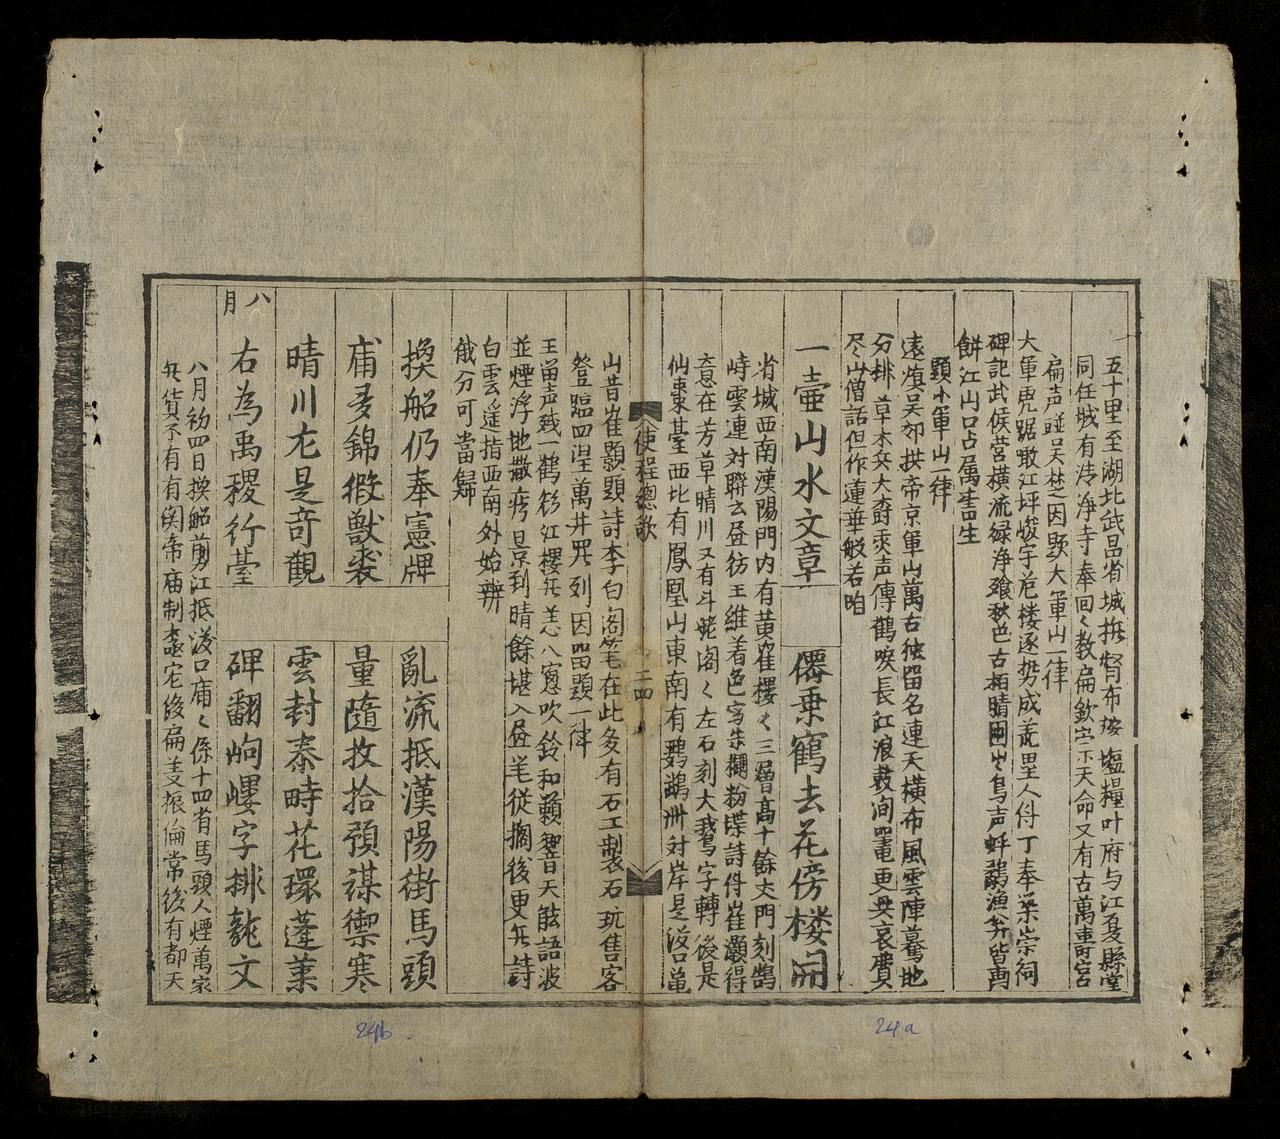 五十里至湖北武昌省城撫督布按塩糧叶府与江夏縣堂
同任城有清净寺奉回〻教扁欽定示天命又有古萬壽宮
扁声踫吴楚因題大軍山一律
大軍虎踞瞰江坪峻宇危楼逐势成荒里人件丁奉菜崇祠
碑記武侯营横流緑净飱秋色古栢晴圍尖鳥声蚌鷸漁翁皆画
餅江山口占属書生
題小軍山一律
遠旗吴邜拱帝京軍山萬古彼留名連天横布風雲陣驀地
分排草木兵大斎乘声傳鶴唳長江浪鼓洶鼍更無哀費
尽山僧話但作蓮華般若咱
一壷山水文章
僊乗鶴去花傍楼開
省城西南漢陽門内有黄崔樓〻三層高十餘丈門刻鵠
峙雲連対聯去昼彷王維着色寫朱欄粉堞詩件崔灝得
意在芳草晴川又有斗姥阁〻左石刻大鵞字轉後是
仙棗臺西北有鳳凰山東南有鸚鵡洲対岸是汊口亀
使程總歌
二四
山昔崔顥題詩李白阁笔在此多有石工製石玩售客
登臨四望萬井罗列因畄題一律
王畄声残一鶴彩江樓無恙八窓吹鈴和籟響天能語波
並煙浮地撒疼景到晴餘堪入昼羊從擱後更無詩
白雲遥指西南外始辨
俄分可當歸
換船仍奉憲牌
亂流抵漢陽街馬頭
甫多錦緞獸裘
量隨收拾預謀禦寒
晴川尤是竒觀
雲封秦時花環蓬莱
八月
右為禹稷行臺
碑翻岣嶁字排龍文
八月初四日换船剪江抵汊口庸〻係十四省馬頭人煙萬家
無貨不有有関帝庙制矗宏後扁支振倫常後有都天